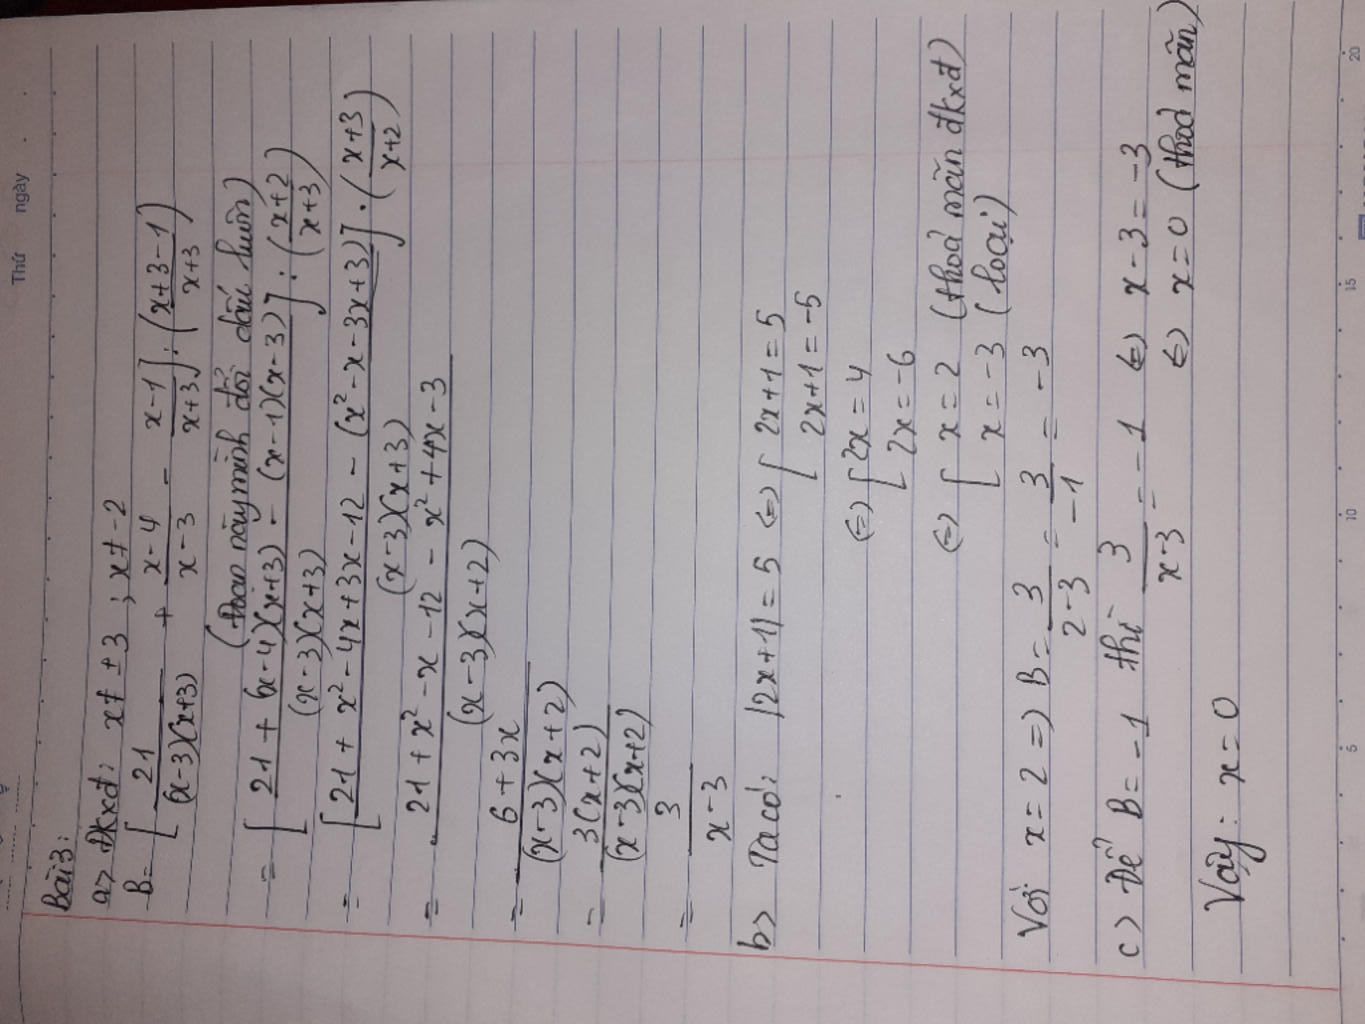 Thứ ngày
Bài 3:
a> Đkxđ: x ≠ ±3 ; x ≠ -2
B = [ 21/((x-3)(x+3)) + (x-4)/(x-3) - (x-1)/(x+3) ] : ( (x+3-1)/(x+3) )
(Đoạn này mình đổi dấu luôn)
= [ (21 + (x-4)(x+3) - (x-1)(x-3))/((x-3)(x+3)) ] : ( (x+2)/(x+3) )
= [ (21 + x² - 4x + 3x - 12 - (x² - x - 3x + 3))/((x-3)(x+3)) ] . ( (x+3)/(x+2) )
= (21 + x² - x - 12 - x² + 4x - 3)/((x-3)(x+2))
= (6 + 3x)/((x-3)(x+2))
= (3(x+2))/((x-3)(x+2))
= 3/(x-3)
b> Ta có: |2x+1| = 5 (=) [ 2x+1 = 5
2x+1 = -5
(=) [ 2x = 4
2x = -6
(=) [ x = 2 (thoả mãn đkxđ)
x = -3 (loại)
Với x = 2 =) B = 3/(2-3) = 3/-1 = -3
c) Để B = -1 thì 3/(x-3) = -1 (=) x - 3 = -3
(=) x = 0 (thoả mãn)
Vậy: x = 0
5 10 15 20